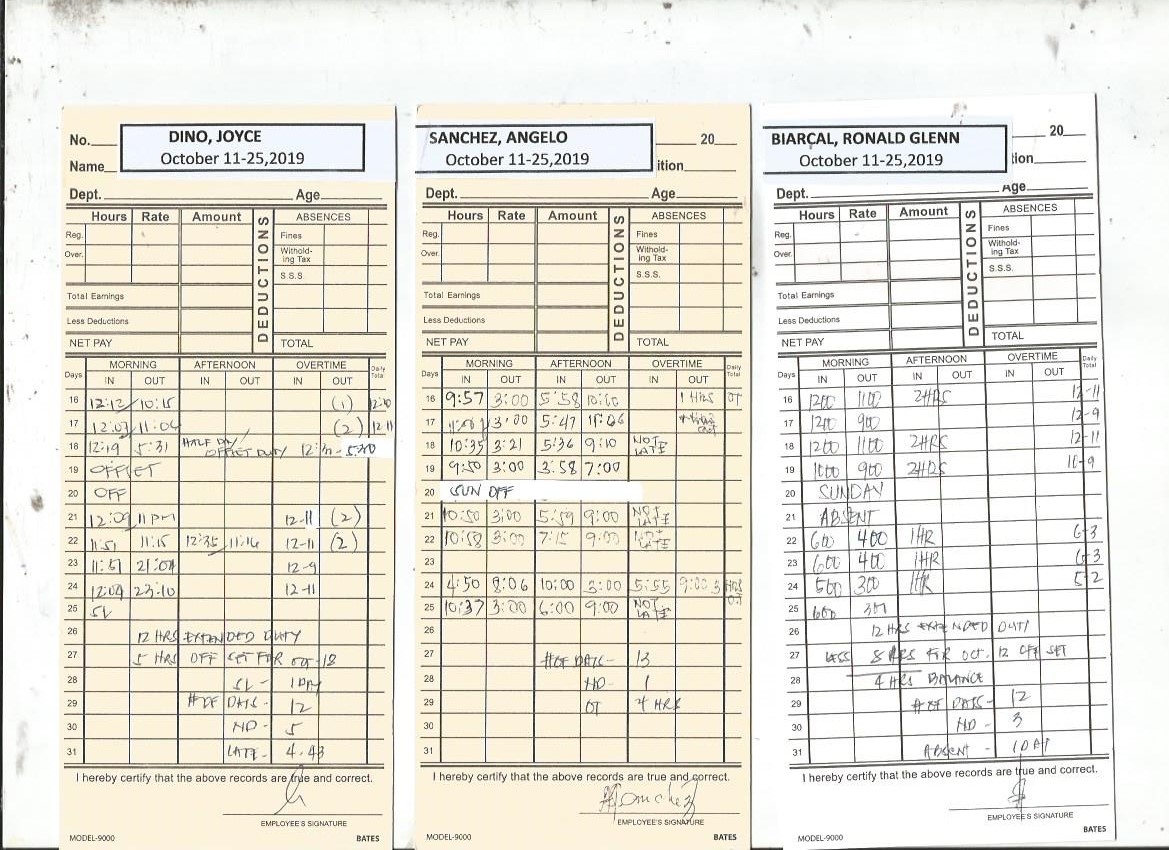 No.
DINO, JOYCE
October 11-25,2019
Name
Dept. Age
Hours Rate Amount DEDUCTIONS ABSENCES
Reg. Fines
Over. Withold-ing Tax
S.S.S.
Total Earnings
Less Deductions
NET PAY TOTAL
Days MORNING AFTERNOON OVERTIME Daily Total
IN OUT IN OUT IN OUT
16 12:12 10:15 (1) 12-10
17 12:07 11:04 (2) 12-11
18 12:19 5:31 HALF DAY OFFSET DUTY 5:30
19 OFFSET
20 OFF
21 12:09 11PM 12-11 (2)
22 11:51 11:15 12:35 11:16 12-11 (2)
23 11:51 21:04 12-9
24 12:04 23:10 12-11
25 SL
26 12 HRS EXTENDED DUTY
27 5 HRS OFF SET FOR OCT-18
28 SL - 1DAY
29 # OF DAYS - 12
30 ND - 5
31 LATE - 4.43
I hereby certify that the above records are true and correct.
EMPLOYEE'S SIGNATURE
MODEL-9000 BATES
SANCHEZ, ANGELO 20
October 11-25,2019
ition
Dept. Age
Hours Rate Amount DEDUCTIONS ABSENCES
Reg. Fines
Over. Withold-ing Tax
S.S.S.
Total Earnings
Less Deductions
NET PAY TOTAL
Days MORNING AFTERNOON OVERTIME Daily Total
IN OUT IN OUT IN OUT
16 9:57 3:00 5:58 10:10 1 HRS OT
17 11:00 3:00 5:47 11:06
18 10:35 3:21 5:36 9:10 NOT LATE
19 9:50 3:00 3:58 7:00
20 SUN OFF
21 10:50 3:00 5:59 9:00 NOT LATE
22 10:58 3:00 7:15 9:00 NOT LATE
23
24 4:50 8:06 10:00 3:00 5:55 9:00 3 HRS OT
25 10:37 3:00 6:00 9:00 NOT LATE
26
27 # OF DAYS - 13
28 ND - 1
29 OT 4 HRS
30
31
I hereby certify that the above records are true and correct.
Sanchez
EMPLOYEE'S SIGNATURE
MODEL-9000 BATES
BIARCAL, RONALD GLENN 20
October 11-25,2019
ition
Dept. Age
Hours Rate Amount DEDUCTIONS ABSENCES
Reg. Fines
Over. Withold-ing Tax
S.S.S.
Total Earnings
Less Deductions
NET PAY TOTAL
Days MORNING AFTERNOON OVERTIME Daily Total
IN OUT IN OUT IN OUT
16 1200 1100 2HRS 12-11
17 1200 900 12-9
18 1200 1100 2HRS 12-11
19 1000 900 2HRS 10-9
20 SUNDAY
21 ABSENT
22 600 400 1HR 6-3
23 600 400 1HR 6-3
24 500 300 1HR 5-2
25 600 300
26 12 HRS EXTENDED DUTY
27 LESS 8 HRS FOR OCT. 12 OFF SET
28 4 HRS BALANCE
29 # OF DAYS - 12
30 ND - 3
31 ABSENT - 1DAY
I hereby certify that the above records are true and correct.
EMPLOYEE'S SIGNATURE
MODEL-9000 BATES